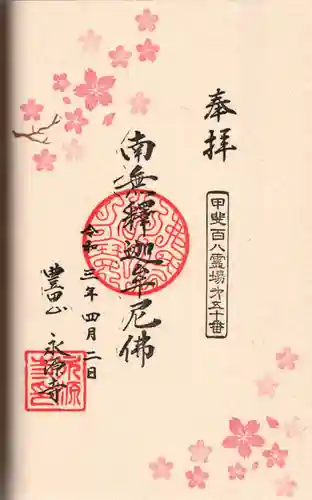 奉拝
甲斐百八霊場第五十番
南無釋迦牟尼佛
令和三年四月二日
豊山 永源寺